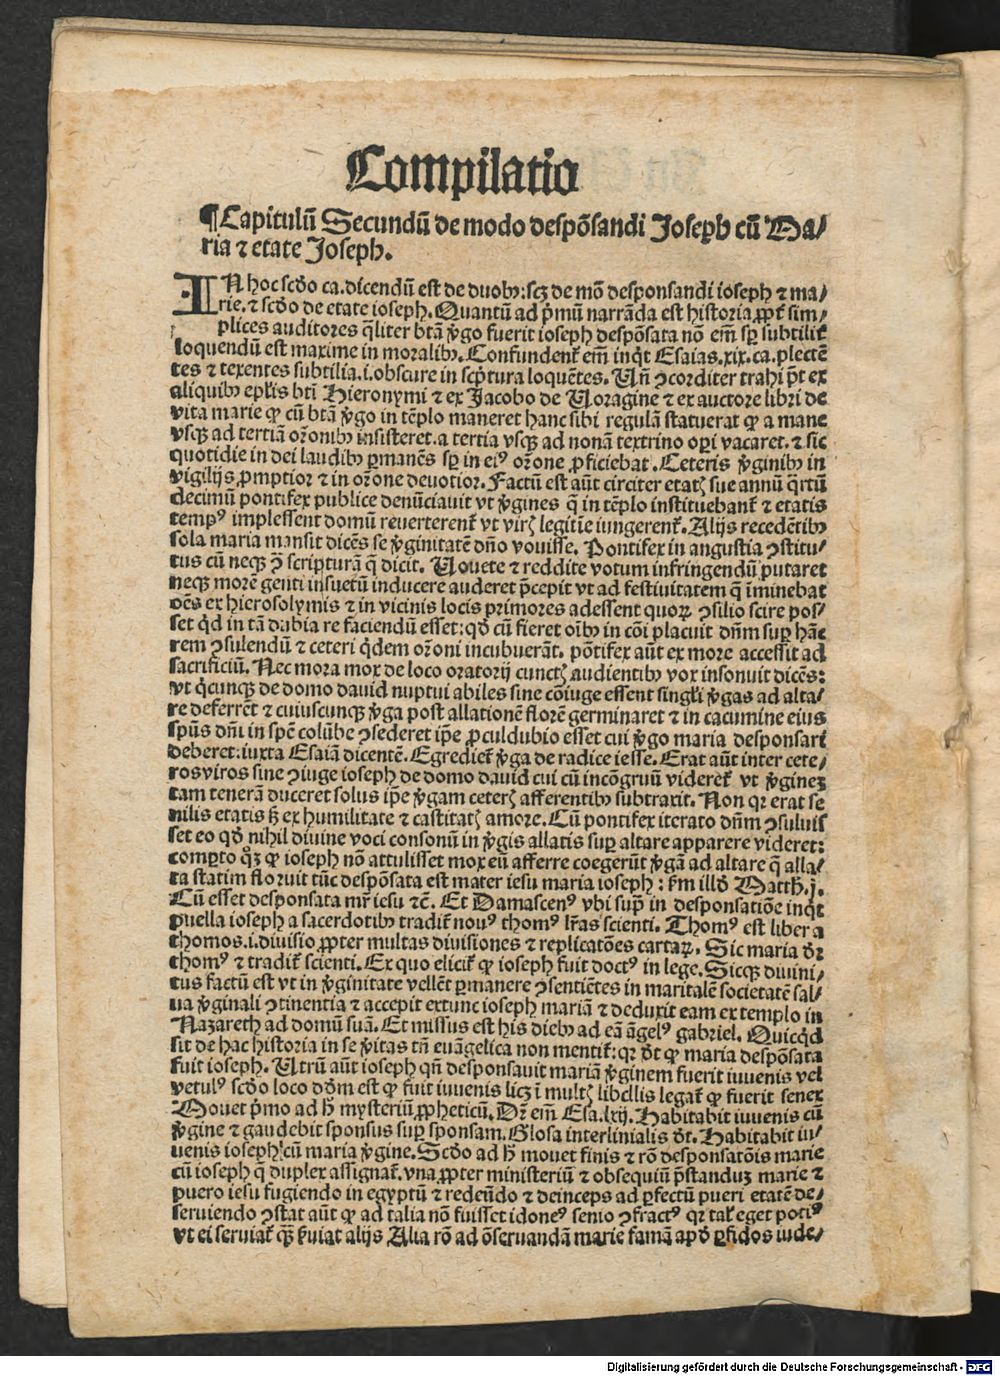 Compilatio
¶ Capitulū Secundū de modo despōsandi Joseph cū Ma/
ria ⁊ etate Joseph.
IN hoc scd̄o ca. dicendū est de duobꝰ: scꝫ de mō desponsandi ioseph ⁊ ma/
rie. ⁊ scd̄o de etate ioseph. Quantū ad p̄mū narrāda est historia ꝓpt̄ sim/
plices auditores q̄liter btā ꝟgo fuerit ioseph despōsata nō em̄ sꝑ subtilit̄
loquendū est maxime in moralibꝰ. Confundent̄ em̄ inq̇t Esaias. xix. ca. plectē
tes ⁊ texentes subtilia. i. obscure in scp̄tura loquētes. Un̄ ꝯcorditer trahi p̄t ex
aliquibꝰ epl̄is btī Hieronymi ⁊ ex Jacobo de Uoragine ⁊ ex auctore libri de
vita marie ꝙ cū btā ꝟgo in tēplo maneret hanc sibi regulā statuerat ꝙ a mane
vsqꝫ ad tertiā or̄onibꝰ insisteret. a tertia vsqꝫ ad nonā textrino oꝑi vacaret. ⁊ sic
quotidie in dei laudibꝰ ꝑmanēs sꝑ in eiꝰ or̄one ꝓficiebat. Ceteris ꝟginibꝰ in
vigilijs ꝓmptior ⁊ in or̄one deuotior. Factū est aūt circiter etatꝭ sue annū q̄rtū
decimū pontifex publice denūciauit vt ꝟgines q̄ in tēplo instituebant̄ ⁊ etatis
tempꝰ implessent domū reuerterent̄ vt virꝭ legitīe iungerent̄. Alijs recedētibꝰ
sola maria mansit dicēs se ꝟginitatē dn̄o vouisse. Pontifex in angustia ꝯstitu/
tus cū neqꝫ ꝯ̄ scripturā q̄ dicit. Uouete ⁊ reddite votum infringendū putaret
neqꝫ morē genti insuetū inducere auderet p̄cepit vt ad festiuitatem q̄ īminebat
oēs ex hierosolymis ⁊ in vicinis locis primores adessent quoꝝ ꝯsilio scire pos/
set q̇d in tā dubia re faciendū esset: qd̄ cū fieret oībꝰ in cōi placuit dn̄m suꝑ hāc
rem ꝯsulendū ⁊ ceteri q̇dem or̄oni incubuerāt. pōtifex aūt ex more accessit ad
sacrificiū. Nec mora mox de loco oratorij cunctꝭ audientibꝰ vox insonuit dicēs:
vt q̇cunqꝫ de domo dauid nuptui abiles sine cōiuge essent singl̄i ꝟgas ad alta/
re deferrēt ⁊ cuiuscunqꝫ ꝟga post allationē florē germinaret ⁊ in cacumine eius
spūs dn̄i in spē colūbe ꝯsederet ip̄e ꝓculdubio esset cui ꝟgo maria desponsari
deberet: iuxta Esaiā dicentē. Egrediet̄ ꝟga de radice iesse. Erat aūt inter cete/
ros viros sine ꝯiuge ioseph de domo dauid cui cū incōgruū videret̄ vt ꝟginem
tam tenerā duceret solus ip̄e ꝟgam ceterꝭ afferentibꝰ subtraxit. Non qꝛ erat se
nilis etatis sꝫ ex humilitate ⁊ castitatꝭ amore. Cū pontifex iterato dn̄m ꝯsuluis
set eo qd̄ nihil diuine voci consonū in ꝟgis allatis suꝑ altare apparere videret:
comꝑto q̊ꝫ ꝙ ioseph nō attulisset mox eū afferre coegerūt ꝟgā ad altare q̄ alla/
ta statim floruit tūc despōsata est mater iesu maria ioseph: fm illd̄ Matth̄. j.
Cū esset desponsata mr̄ iesu ⁊c̄. Et Damascenꝰ vbi sup̄ in desponsatiōe inq̇t
puella ioseph a sacerdotibꝰ tradit̄ nouꝰ thomꝰ lr̄as scienti. Thomꝰ est liber a
thomos. i. diuisio ꝓpter multas diuisiones ⁊ replicatōes cartaꝝ. Sic maria dr̄
thomꝰ ⁊ tradit̄ scienti. Ex quo elicit̄ ꝙ ioseph fuit doctꝰ in lege. Sicqꝫ diuini/
tus factū est vt in ꝟginitate vellēt ꝑmanere ꝯsentiētes in maritalē societatē sal/
ua ꝟginali ꝯtinentia ⁊ accepit extunc ioseph mariā ⁊ deduxit eam ex templo in
Nazareth ad domū suā. Et missus est his diebꝰ ad eā āgelꝰ gabriel. Quicq̇d
sit de hac historia in se ꝟitas tn̄ euāgelica non mentit̄: qꝛ d̄t ꝙ maria despōsata
fuit ioseph. Utrū aūt ioseph qn̄ desponsauit mariā ꝟginem fuerit iuuenis vel
vetulꝰ scd̄o loco dd̄m est ꝙ fuit iuuenis licꝫ ī multꝭ libellis legat̄ ꝙ fuerit senex
Mouet p̄mo ad h̄ mysteriū ꝓpheticū. Dr̄ em̄ Esa. lxij. Habitabit iuuenis cū
ꝟgine ⁊ gaudebit sponsus suꝑ sponsam. Glosa interlinialis d̄t. Habitabit iu/
uenis ioseph cū maria ꝟgine. Scd̄o ad h̄ mouet finis ⁊ rō desponsatōis marie
cū ioseph q̄ duplex assignat̄. vna ꝓpter ministeriū ⁊ obsequiū p̄standuꝫ marie ⁊
puero iesu fugiendo in egyptū ⁊ redeūdo ⁊ deinceps ad ꝑfectū pueri etatē de/
seruiendo ꝯstat aūt ꝙ ad talia nō fuisset idoneꝰ senio ꝯfractꝰ qꝛ tal̄ eget potiꝰ
vt ei seruiat̄ qꝫ̄ ẜuiat alijs Alia rō ad ōseruandā marie famā apd̄ ꝑfidos iude/
Digitalisierung gefördert durch die Deutsche Forschungsgemeinschaft - DFG